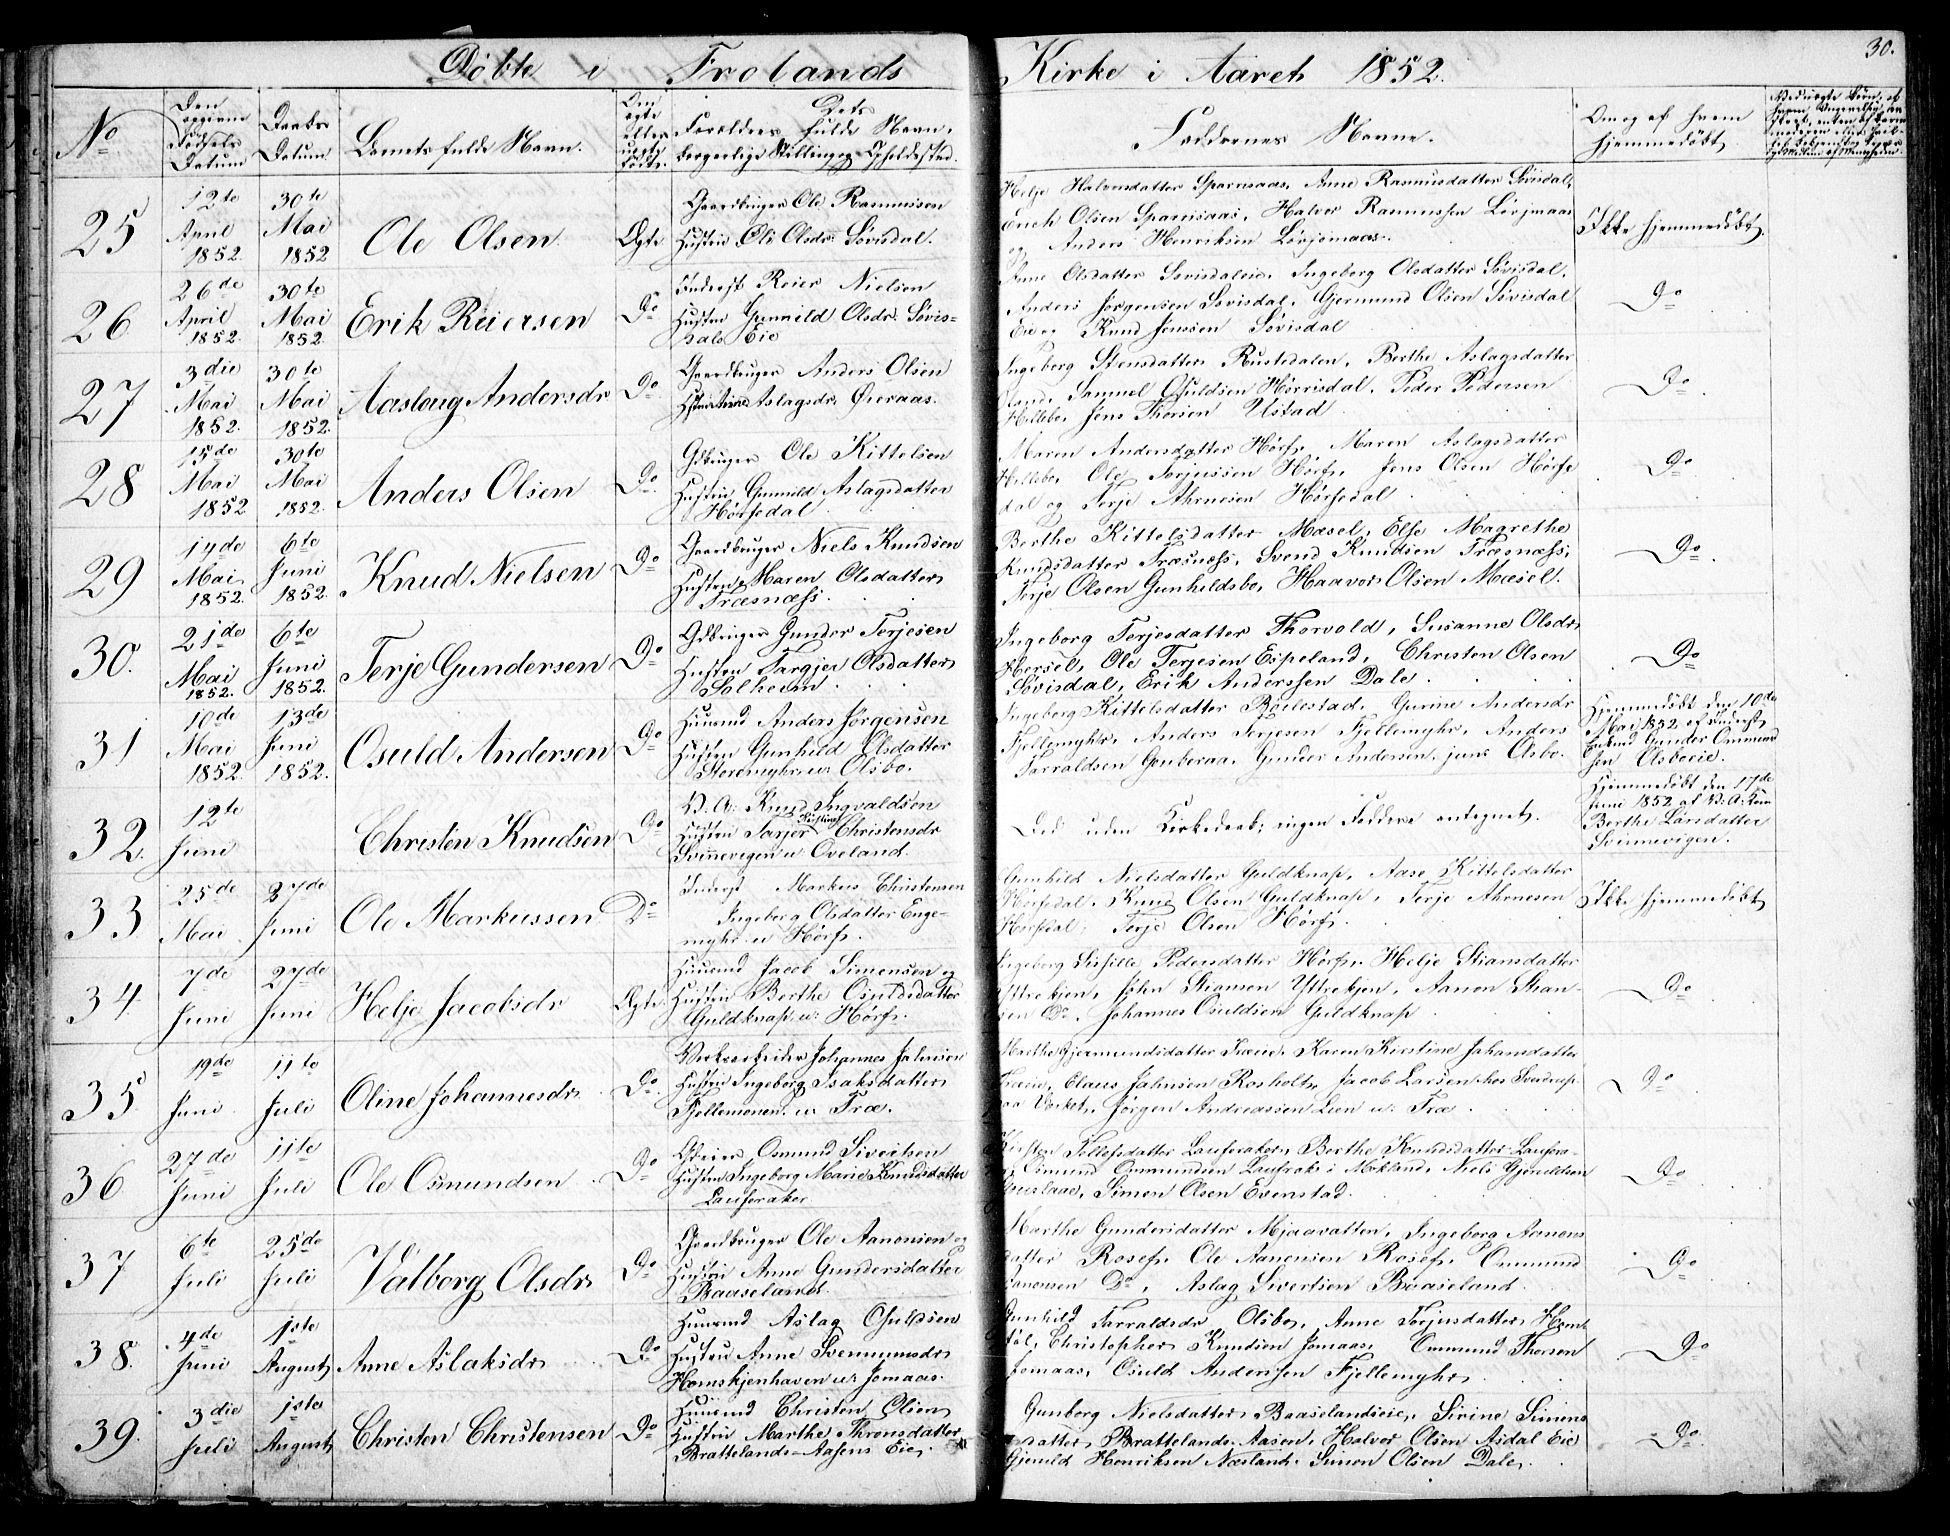 Døbte i Frolands Kirke i Aaret 1852. 30.
No
Den opgivne Fødsels Datum
Daabs Datum
Barnets fulde Navn.
Om ægte eller uægte født.
Dets Forældres fulde Navn, borgerlige Stilling og Opholdssted.
Faddernes Navne.
Om og af hvem hjemmedøbt.
25
12te April 1852.
30te Mai 1852
Ole Olsen
Ægte
Gaardbruger Ole Rasmussen
Hustru Oli Olsdr. Søvisdal.
Helje Halvorsdatter Sparnsaas, Anne Rasmusdatter Søvisdal,
Erich Olsen Sparnsaas, Halvor Rasmussen Løvjomaas
og Anders Henriksen Løvjomaas.
Ikke hjemmedøbt.
26
26de April 1852.
30te Mai 1852.
Erik Reiersen
Do
Inderst Reier Nielsen
Hustru Gunnild Olsdr. Søvis-
dals Eie
Anne Olsdatter Søvisdaleie, Ingeborg Olsdatter Søvisdal,
Anders Jørgensen Søvisdal, Gjermund Olsen Søvisdal
Eie og Knud Jensen Søvisdal
Do
27
3die Mai 1852.
30te Mai 1852.
Aaslaug Andersdr
Do
Gaardbruger Anders Olsen
Aslagsdr. Øieraas.
Ingeborg Stensdatter Rustedalen, Berthe Aslagsdatter
Samuel Osuldsen Hørrisdal, Peder Pedersen
Hillebo, Jens Thorsen Ustad
Do
28
15de Mai 1852
30te Mai 1852.
Anders Olsen
Do
Gdbruger Ole Kittelsen
Hustru Gunnild Aslagsdatter
Hørsedal
Maren Andersdatter Hørs, Maren Aslagsdatter
Hillebo, Ole Torjussen Hørs, Jens Olsen Hørse
dal og Terje Ahrnesen Hørsedal
Do
29
14de Mai 1852.
6te Juni 1852.
Knud Nielsen
Do
Gaardbruger Niels Knudsen
Hustru Maren Olsdatter
Træsnæss.
Berthe Kittelsdatter Mæsel, Else Magrethe
Knudsdatter Træsnæss, Svend Knudsen Træsnæss,
Terje Olsen Gunhildsbo, Haavor Olsen Mæsel.
Do
30.
21de Mai 1852.
6te Juni 1852.
Terje Gundersen
Do
Gdbruger Gunder Terjesen
Hustru Targjer Olsdatter
Solheim
Ingeborg Terjesdatter Thorvold, Susanne Olsdr
Hersel, Ole Terjesen Espeland, Christen Olsen
Søvisdal, Erik Anderssen Dale
Do
31
10de Mai 1852.
13de Juni 1852.
Osuld Andersen
Do
Huusmd Anders Jørgensen
Hustru Gunhild Olsdatter
Storemyhr u. Olsbo.
Ingeborg Kittelsdatter Bøilestad, Gurine Andersdr
Fjellemyhr, Anders Terjesen Fjellemyhr, Anders
Tarraldsen Gauberaa, Gunder Andersen, jun: Osbo.
Hjemmedøbt den 10de
Mai 1852 af Inderst
Gunder Ommund
sen Olsboeie.
32.
12te Juni
Christen Knudsen
Do
V. A: Knud Ingvaldsen
Hustru Tarjer Kirstine Christensdr
Svinnevigen u. Oveland.
Død uden Kirkedaab; ingen Faddere antegnet.
Hjemmedøbt den 17de
Juni 1852 af V: A: Kone
Berthe Larsdatter
Svinnevigen.
33
25de Mai
27de Juni
Ole Markussen
Do
Inderst Markus Christensen
Ingeborg Olsdatter Enge-
myhr u Hørs.
Gunhild Nielsdatter Guldknap, Aase Kittelsdatter
Hørsedal, Knud Olsen Guldknap, Terje Ahrnesen
Hørsedal, Terje Olsen Hørs.
Ikke hjemmedøbt
34
7de Juni
27de Juni
Helje Jacobsdr
Ægte
Huusmd Jacob Simonsen og
Hustru Berthe Osuldsdatter
Guldknap u: Hørs.
Ingeborg Sissille Pedersdatter Hørs, Helje Stiansdatter
Yttrekjen, John Stiansen Yttrekjen, Aanon Stian-
sen Do, Johannes Osuldsen Guldknap
Do
35
19de Juni
11te Juli
Oline Johannesdr
Do
Verksarbeider Johannes Jahnsen
Hustru Ingeborg Isaksdatter
Fjellemonen u. Træ.
Marthe Gjermundsdatter Træeie, Karen Kirstine Johansdatter
Træeie, Claus Jahnsen Rosholt, Jacob Larsen hos Sverdrup
paa Værket, Jørgen Andreassen Lien u. Træ
Do
36
27de Juni
11te Juli
Ole Osmundsen
Do
Gdeier Osmund Sivertsen
Hustru Ingeborg Marie Knudsdatter
Lauvraker
Kirsten Tollefsdatter Lauvraker, Berthe Knudsdatter Lauvra-
Osmund Ommundsen Lauvrak i Mykland, Niels Gjeruldsen
Simon Olsen Evenstad.
Do
37
6te Juli
25de Juli
Valborg Olsdr
Do
Gaardbruger Ole Aanonsen og
Hustru Anne Gundersdatter
Baaseland.
Marthe Gundersdatter Mjaavatten, Ingeborg Aanons
datter Rosef, Ole Aanonsen Rosef, Ommund
Aanonsen Do, Aslag Sivertsen Baaseland
Do
38.
4de Juni
1ste August
Anne Aslaksdr
Do
Huusmd Aslag Osuldsen
Hustru Anne Svennumsdr
Homskjenhaven u: Jomaas.
Gunhild Tarraldsdr Olsbo, Anne Torjusdatter Hom
Christopher Knudsen Jomaas, Ommund Thorsen
Jomaas, Osuld Andersen Fjellemyhr
Do
39.
3die Juli
1ste August
Christen Christensen
Do
Huusmd Christen Olsen
Hustru Marthe Thronsdatter
Brattelands-Aasens Eie.
Gunborg Nielsdatter Baaselandseie, Sirine Simons
datter Brattelands-Aasen, Halvor Olsen Asdal Eie
Gjeruld Henriksen Næsland, Simon Olsen Dale.
Do